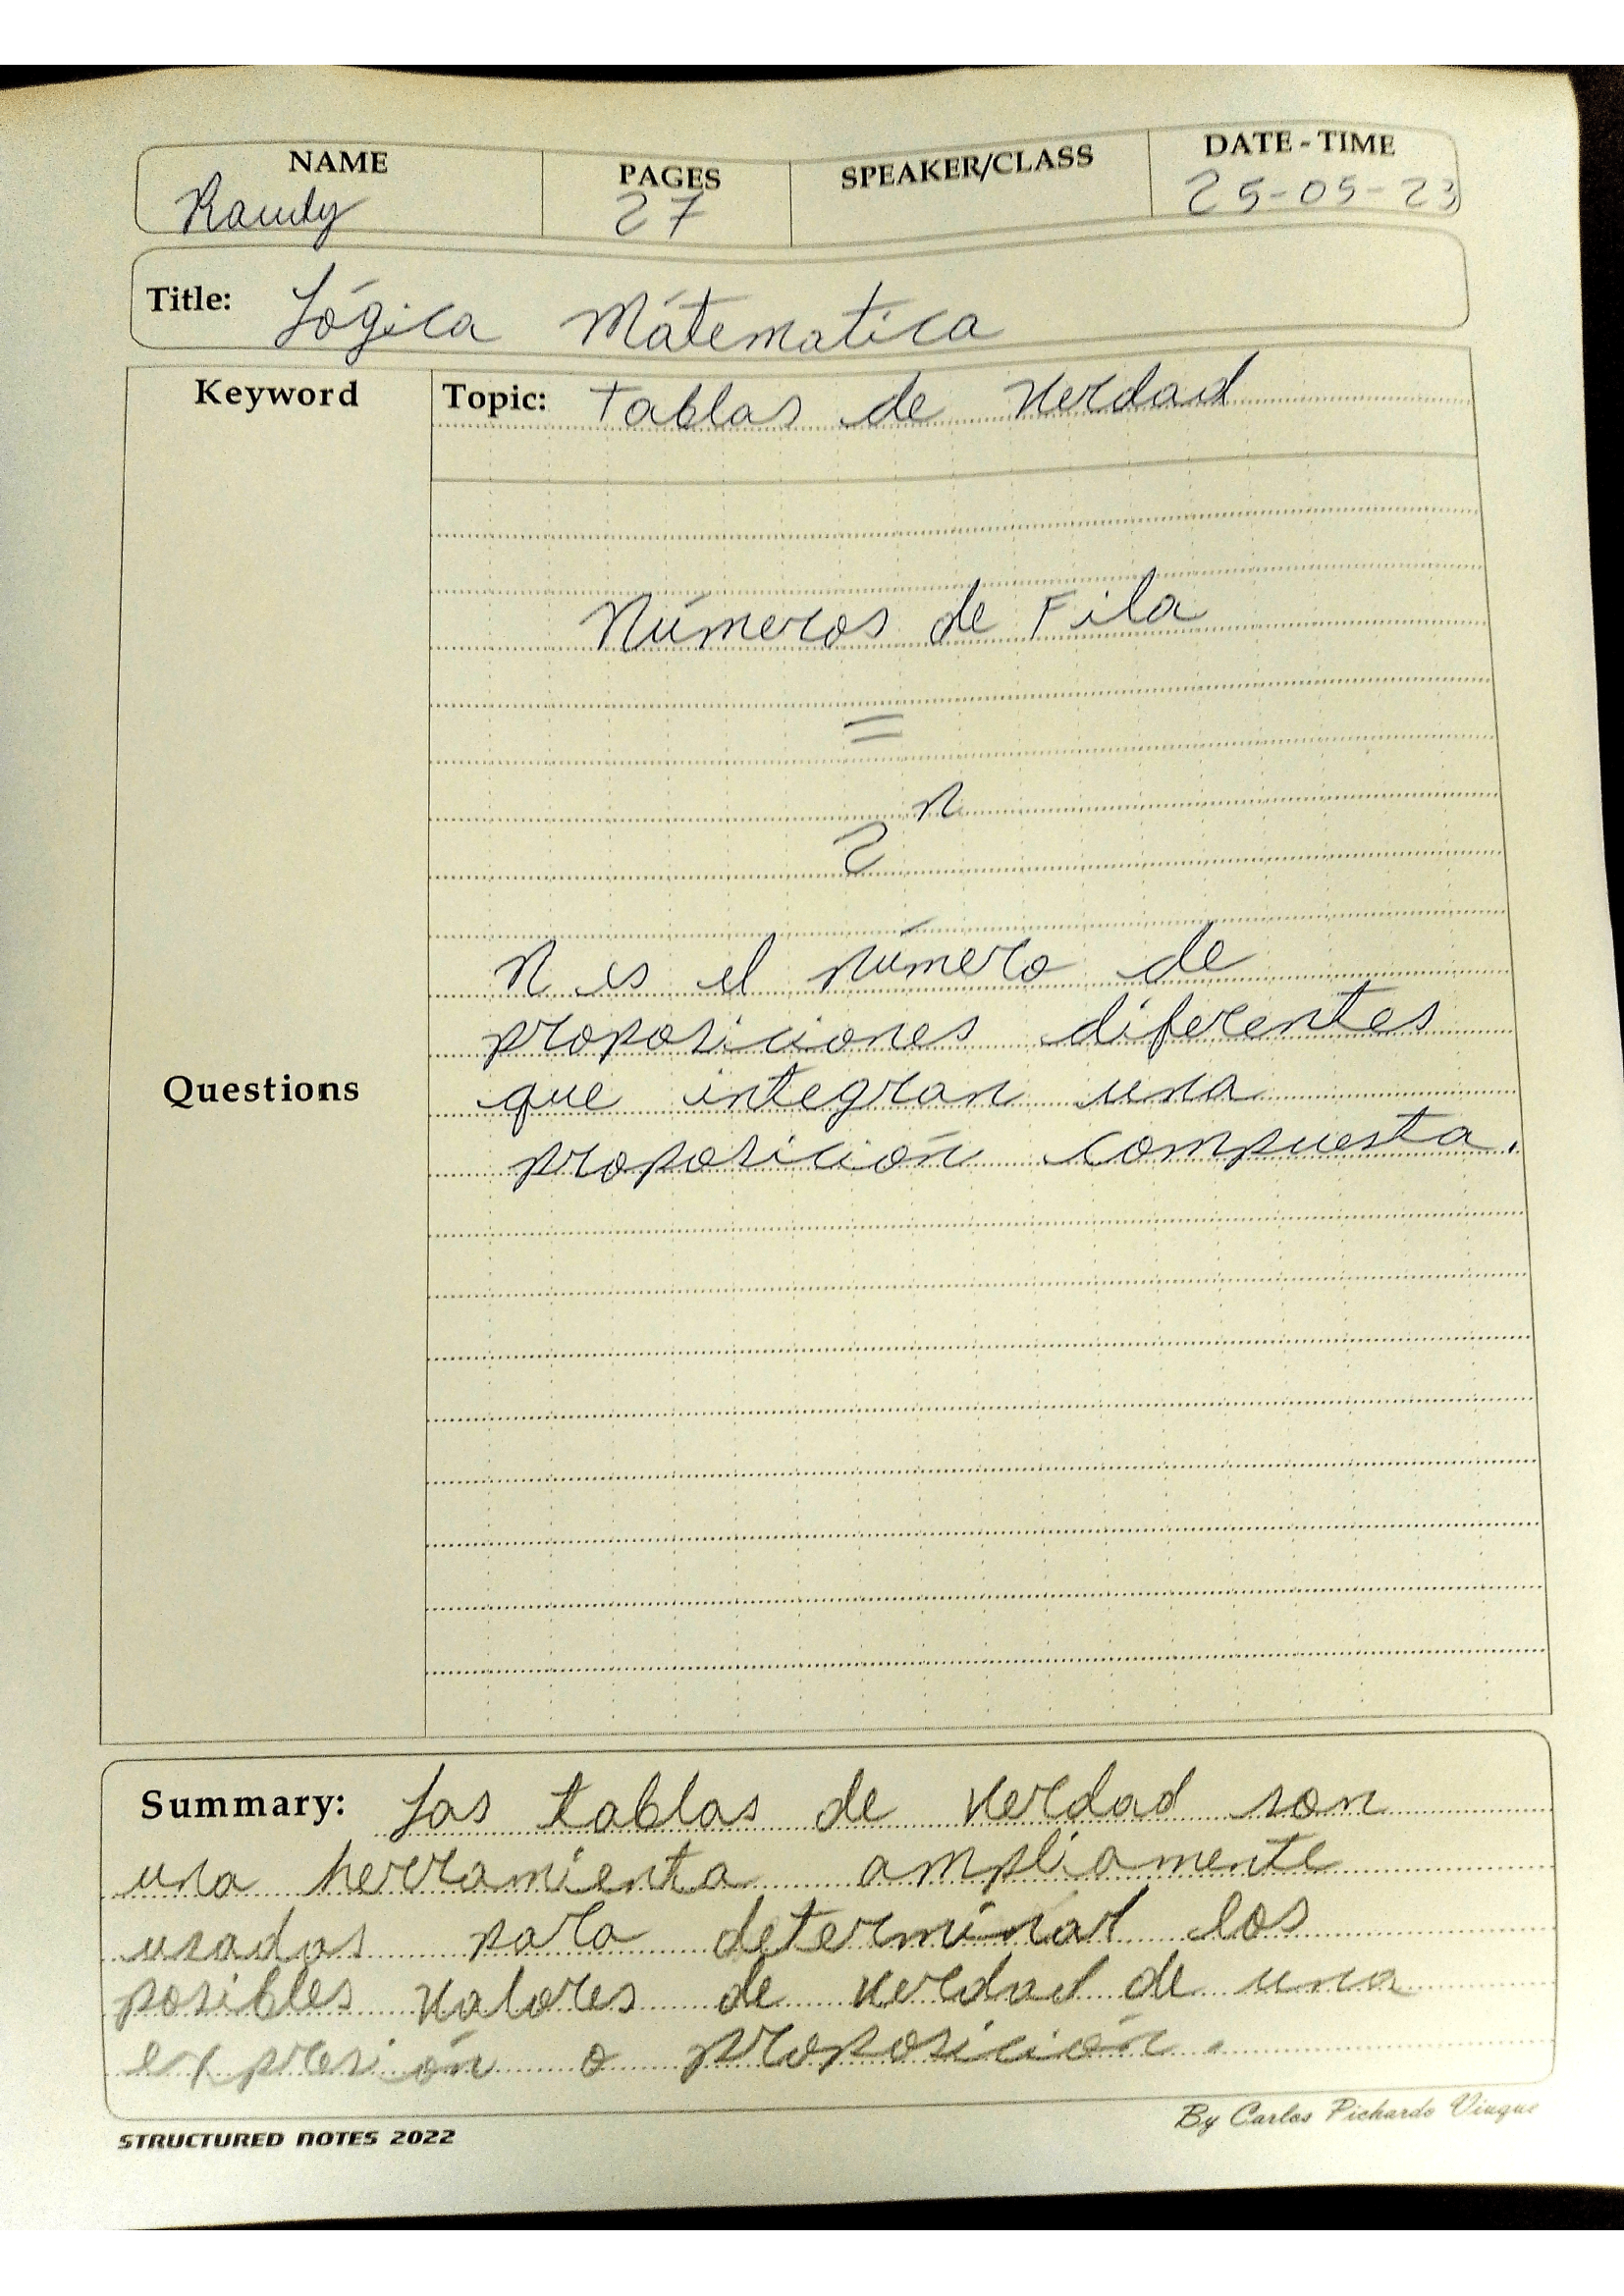 NAME PAGES SPEAKER/CLASS DATE - TIME
Randy 27 25-05-23
Title: Lógica Mátematica
Keyword Topic: tablas de verdad
Números de Fila
=
2ⁿ
N es el número de
proposiciones diferentes
Questions que integran una
proposición compuesta.
Summary: Las tablas de verdad son
una herramienta ampliamente
usadas para determinar los
posibles valores de verdad de una
expresión o proposición.
By Carlos Pichardo Viuque
STRUCTURED NOTES 2022